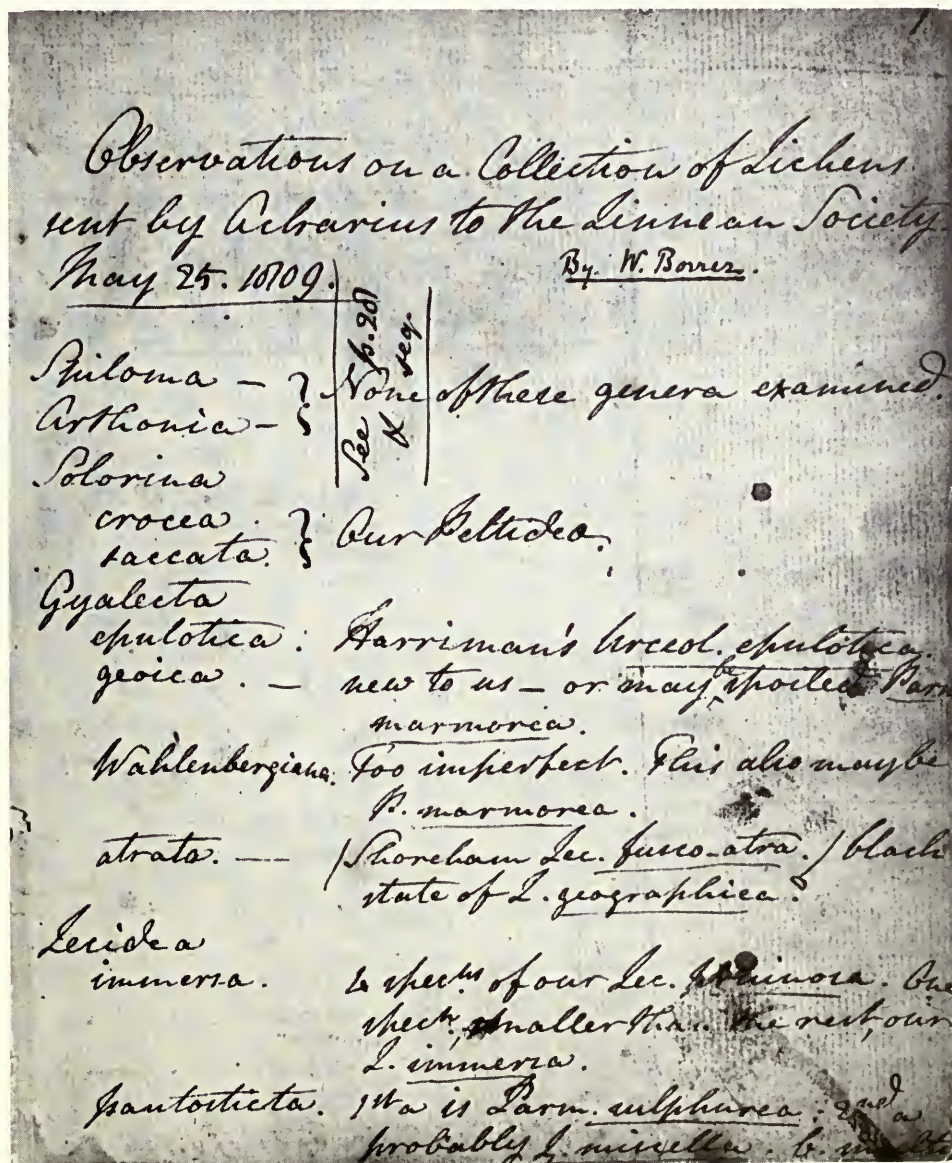 Observations on a Collection of Lichens
sent by Acharius to the Linnean Society
May 25. 1809.
By. W. Borrer.
See p. 20
& seq
Spiloma —
Arthonia —
None of these genera examined.
Solorina
crocea .
saccata.
Our Peltidea.
Gyalecta
epulotica : Harriman's Urceol. epulotica.
geoica . — new to us — or may be spoiled Parm
marmorea.
Wahlenbergiana. Too imperfect. This also may be
P. marmorea.
atrata. — (Shoreham Lec. fusco-atra.) black
state of L. geographica?
Lecidea
immersa. specns of our Lec. pruinosa. One
specn. smaller than the rest, our
L. immersa.
pantosticta. 1st a is Parm. sulphurea : 2nd a
probably L. miscella. b.